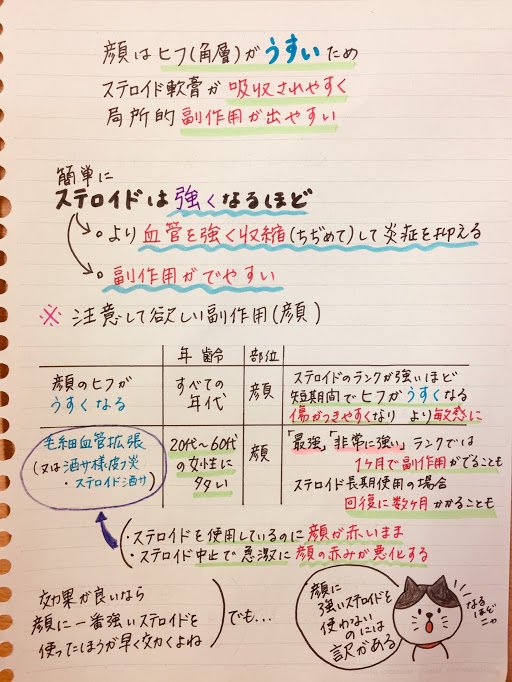 顔はヒフ(角層)がうすいため
ステロイド軟膏が吸収されやすく
局所的副作用が出やすい
簡単に
ステロイドは強くなるほど
より血管を強く収縮(ちぢめて)して炎症を抑える
副作用がでやすい
※ 注意して欲しい副作用(顔)
年齢 部位
顔のヒフが
うすくなる
すべての
年代
顔
ステロイドのランクが強いほど
短期間でヒフがうすくなる
傷がつきやすくなり より敏感に
毛細血管拡張
(又は酒サ様皮フ炎
・ステロイド酒サ)
20代〜60代
の女性に
多い
顔
「最強」「非常に強い」ランクでは
1ヶ月で副作用がでることも
ステロイド長期使用の場合
回復に数ヶ月かかることも
・ステロイドを使用しているのに顔が赤いまま
・ステロイド中止で急激に顔の赤みが悪化する
効果が良いなら
顔に一番強いステロイドを
使ったほうが早く効くよね
でも…
顔に
強いステロイドを
使わない
のには
訳がある
なる
ほど
ニャ